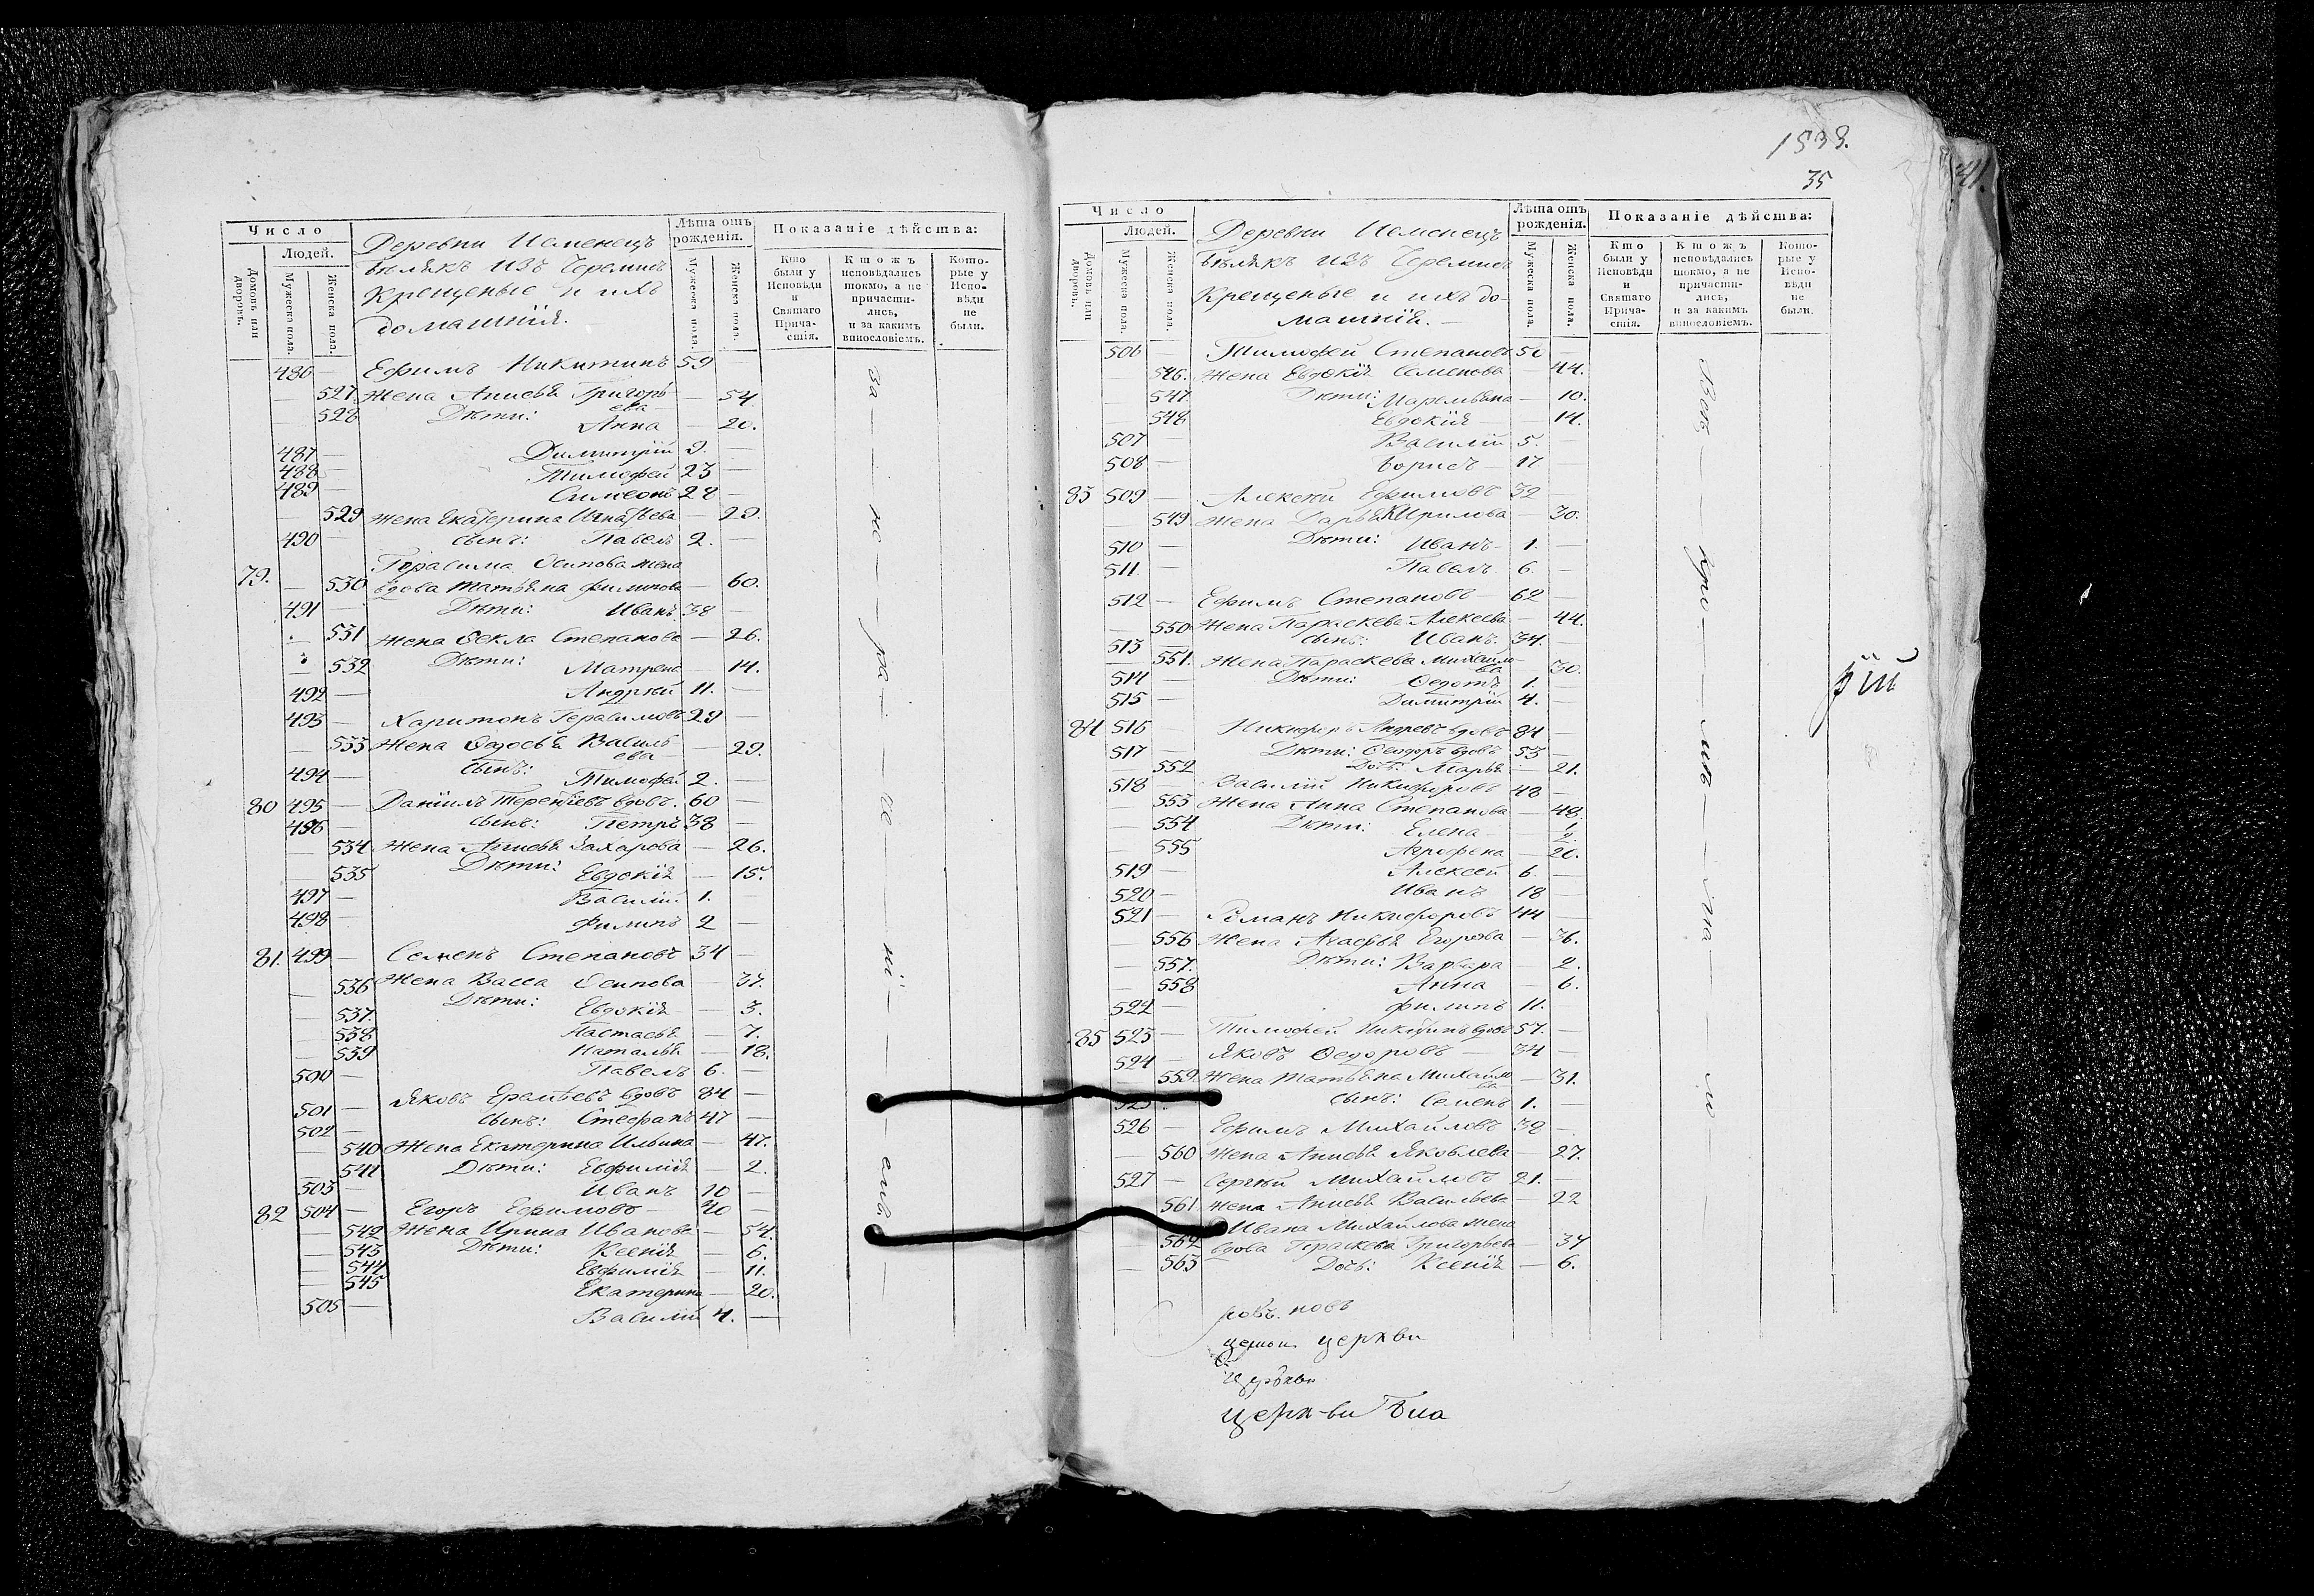 Число
Людей.
Домовъ или дворовъ.
Мужеска пола.
Женска пола.
Деревни Исменецъ
бѣлякъ изъ Черемисъ
Крещеные и ихъ
домашнія.
Лѣта отъ рожденія.
Мужеска пола.
Женска пола.
Показаніе дѣйства:
Кто были у Исповѣди и Святаго Причастія.
Кто жъ исповѣдались токмо, а не причастились, и за какимъ винословіемъ.
Которые у Исповѣди не были.
486 — Ефимъ Никитинъ 59
— 527 Жена Анисья Григорьева — 54
528 Дѣти: Анна — 20.
487 — Димитрій 9. —
488 — Тимофей 23 —
489 — Симеонъ 28 —
— 529 Жена Екатерина Игнатьева — 29.
490 — сынъ: Павелъ 2. —
Герасима Осипова жена
79. — 530 вдова Татьяна Филипова — 60.
491 — Дѣти: Иванъ 38 —
— 531 Жена Ѳекла Степанова — 26.
— 532 Дѣти: Матрена — 14.
492 — Андрей 11. —
493 — Харитонъ Герасимовъ 29 —
— 533 Жена Ѳедосья Васильева — 29.
494 — сынъ: Тимофей 2. —
80 495 — Даніилъ Терентіевъ вдовъ. 60 —
496 — сынъ: Петръ 38 —
— 534 Жена Анисья Захарова — 26.
— 535 Дѣти: Евдокія — 15.
497 — Василій 1.
498 — Филипъ 2 —
81. 499 — Семенъ Степановъ 34 —
— 536 Жена Васса Осипова — 37.
— 537. Дѣти: Евдокія — 3.
— 538 Настасья — 7.
— 539 Наталья — 18.
500 — Павелъ 6. —
501 — Яковъ Еремѣевъ вдовъ 84 —
502 — сынъ: Стефанъ 47 —
— 540 Жена Екатерина Ильина — 47.
— 541 Дѣти: Евфимія — 2.
503 — Иванъ 10 —
82 504 — Егоръ Ефимовъ — 40 —
— 542 Жена Ирина Иванова — 54.
— 543 Дѣти: Ксенія — 6.
— 544 Евфимія — 11.
— 545 Екатерина — 20.
505 — Василій 4. —
1833.
35
Число
Людей.
Домовъ или дворовъ.
Мужеска пола.
Женска пола.
Деревни Исменецъ
бѣлякъ изъ Черемисъ
Крещеные и ихъ до-
машнія. —
Лѣта отъ рожденія.
Мужеска пола.
Женска пола.
Показаніе дѣйства:
Кто были у Исповѣди и Святаго Причастія.
Кто жъ исповѣдались токмо, а не причастились, и за какимъ винословіемъ.
Которые у Исповѣди не были.
506 — Тимофей Степановъ 50 —
— 546. Жена Евдокія Семенова — 44.
— 547. Дѣти: — 10.
— 548 Евдокія — 14.
507 — Василій 5.
508 — Борисъ — 17
83 509 — Алексѣй Ефимовъ 32 —
— 549 Жена Дарья Кирилова — 30.
510 — Дѣти: Иванъ 1. —
511. — Павелъ 6. —
512 — Ефимъ Степановъ — 62 —
— 550 Жена Параскева Алексѣева — 44.
513 — сынъ: Иванъ. 34. —
— 551. Жена Параскева Михайлова — 30.
514 — Дѣти: Ѳедотъ 1. —
515 — Димитрій 4. —
84 516 — Никифоръ Андреевъ вдовъ 84 —
517 — Дѣти: Ѳеодоръ вдовъ 53 —
— 552 Дочь: Марья — 21.
518 — Василій Никифоровъ 48 —
— 553 Жена Анна Степанова — 48.
— 554 Дѣти: Елена
— 555 Агрофена — 20.
519 — Алексѣй 6. —
520 — Иванъ 18 —
521 — Романъ Никифоровъ 44 —
— 556 Жена Агафья Егорова — 36.
— 557. Дѣти: Варвара — 2.
— 558 Анна — 6.
522 — Филипъ 11. —
85 523 — Тимофей Никитинъ вдовъ 57. —
524 — Яковъ Ѳедоровъ — 34 —
— 559. Жена Татьяна Михайлова — 31.
525 — сынъ: Семенъ 1. —
526 — Ефимъ Михайловъ 38 —
— 560 Жена Анисья Яковлева — 27.
527 — Сергѣй Михайловъ 21. —
561 Жена Анисья Васильева — 22
Ивана Михайлова жена
562 вдова Параскева Григорьева — 34
— 563 Дочь: Ксенія — 6.
церкви